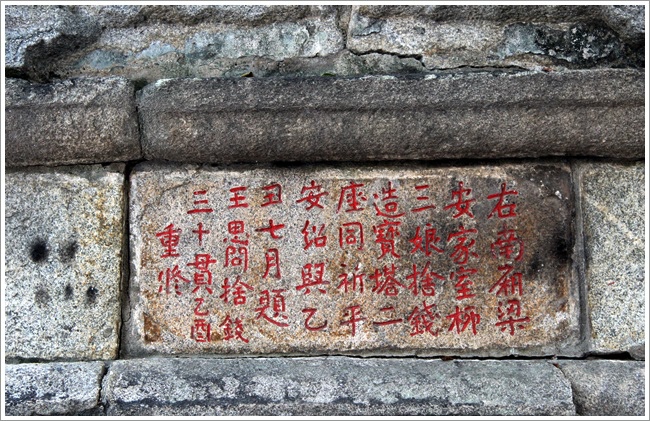 右南廂梁
安家室柳
三娘捨錢
造寶塔二
座同祈平
安紹興乙
丑七月題
王思問捨錢
三十貫乙酉
重修